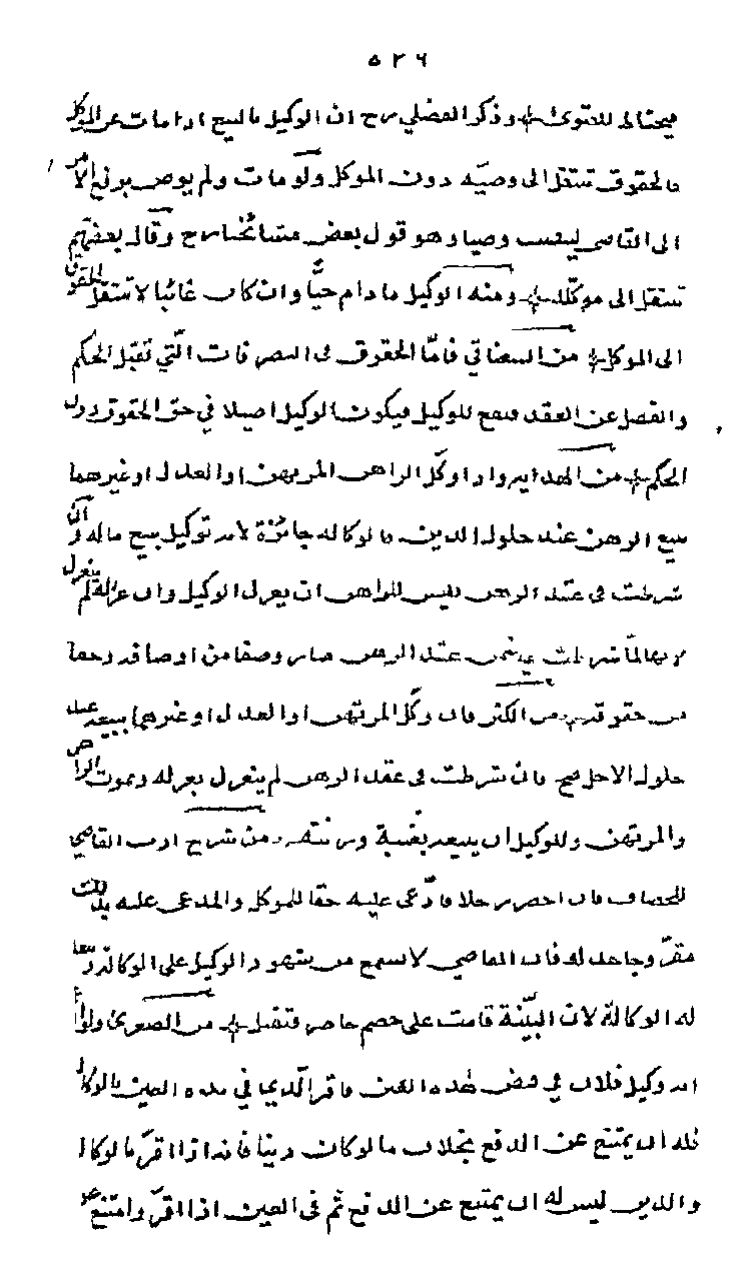 ٥٢٦
فيحتاط للفتوى وذكر الفضلي رح ان الوكيل بالبيع اذا مات عن الموكل
فالحقوق تنتقل الى وصيّه دون الموكل ولو مات ولم يوص يرفع الامر
الى القاضي لينصب وصيا وهو قول بعض مشائخنا رح وقال بعضهم
تنتقل الى موكّله ومنه الوكيل ما دام حيًّا وان كان غائبا لا تنتقل الحقوق
الى الموكل من السغناقي فامّا الحقوق في التصرفات الّتي تقبل الحكم
والفصل عن العقد فيقع للوكيل فيكون الوكيل اصيلا في حق الحقوق دون
الحكم من الهدايه واذا وكّل الراهن المرتهن او العدل او غيرهما
ببيع الرهن عند حلول الدين فالوكالة جائزة لانه توكيل ببيع ماله وان
شرطت في عقد الرهن فليس للراهن ان يعزل الوكيل وان عزله لم ينعزل
لانها لمّا شرطت في ضمن عقد الرهن صار وصفا من اوصافه وحقا
من حقوقه من الكنز فان وكّل المرتهن او العدل او غيرهما ببيعه عند
حلول الاجل صح فان شرطت في عقد الرهن لم ينعزل بعزله وبموت الراهن
والمرتهن وللوكيل ان يبيعه بغيبة ورثته ومن شرح ادب القاضي
للخصاف فان احضر رجلا فادّعى عليه حقا للموكل والمدعى عليه بذلك
مقرّ وجاحد له فان القاضي لا يسمع من شهود الوكيل على الوكالة
له الوكالة لان البيّنة قامت على خصم حاضر فتقبل من الصغرى ولو
انه وكيل فلان في قبض هذه العين فاقر الّذي في يده العين بالوكالة
فله ان يمتنع عن الدفع بخلاف ما لو كان دينا فانه اذا اقرّ بالوكالة
والدين ليس له ان يمتنع عن الدفع ثم في العين اذا اقرّ وامتنع عن